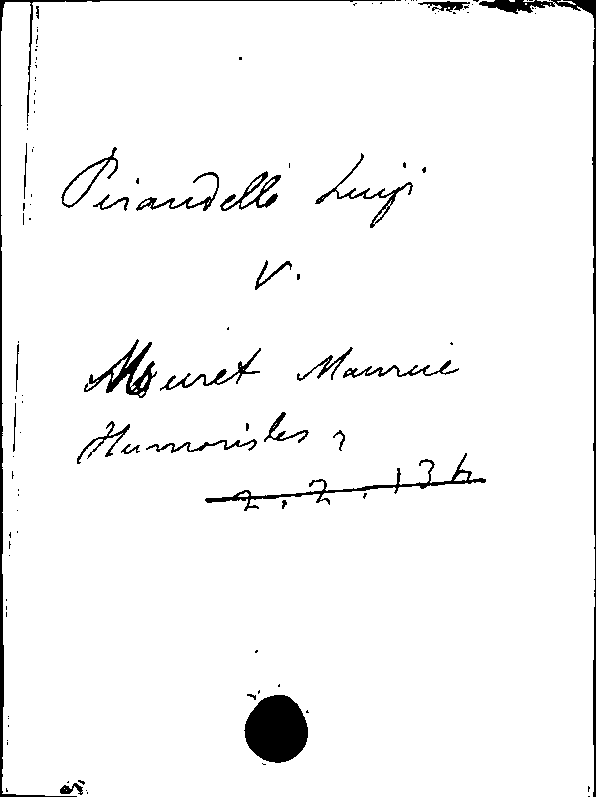 Pirandello Luigi
V.
Muret Maurice
Humoristes,
2.2.13h